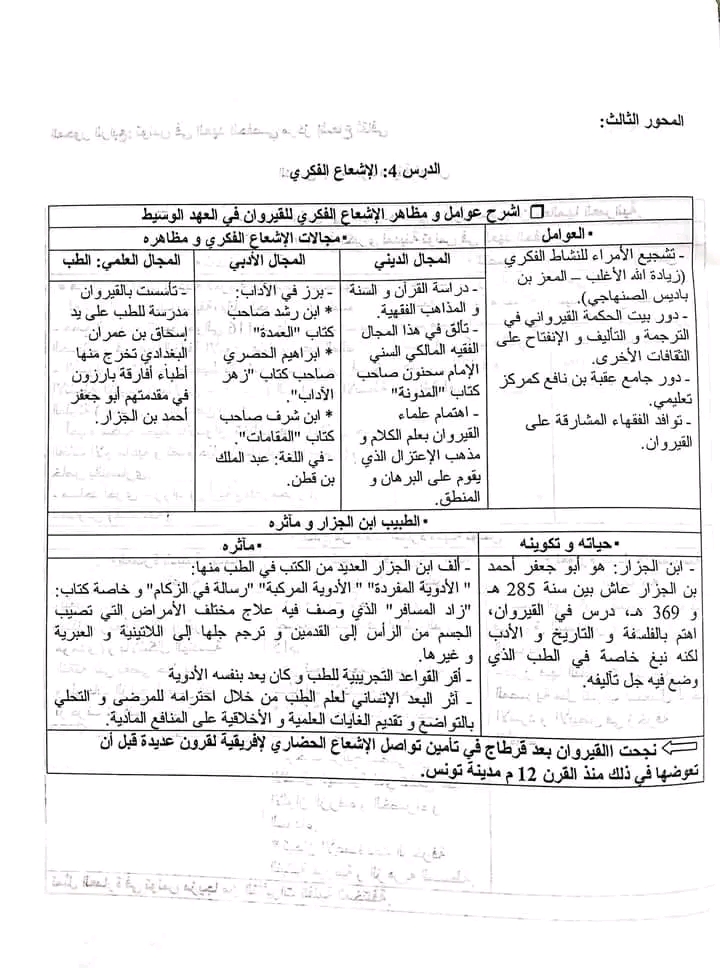 المحور الثالث:
الدرس 4: الإشعاع الفكري
❑ اشرح عوامل و مظاهر الإشعاع الفكري للقيروان في العهد الوسيط
▪ العوامل
- تشجيع الأمراء للنشاط الفكري
(زيادة الله الأغلب – المعز بن
باديس الصنهاجي).
- دور بيت الحكمة القيرواني في
الترجمة و التأليف و الإنفتاح على
الثقافات الأخرى.
- دور جامع عقبة بن نافع كمركز
تعليمي.
- توافد الفقهاء المشارقة على
القيروان.
▪ مجالات الإشعاع الفكري و مظاهره
المجال الديني
- دراسة القرآن و السنة
و المذاهب الفقهية.
- تألق في هذا المجال
الفقيه المالكي السني
الإمام سحنون صاحب
كتاب "المدونة"
- اهتمام علماء
القيروان بعلم الكلام و
مذهب الإعتزال الذي
يقوم على البرهان و
المنطق.
المجال الأدبي
- برز في الآداب:
* ابن رشد صاحب
كتاب "العمدة"
* ابراهيم الحصري
صاحب كتاب "زهر
الآداب".
* ابن شرف صاحب
كتاب "المقامات".
- في اللغة: عبد الملك
بن قطن.
المجال العلمي: الطب
- تأسست بالقيروان
مدرسة للطب على يد
إسحاق بن عمران
البغدادي تخرج منها
أطباء أفارقة بارزون
في مقدمتهم أبو جعفر
أحمد بن الجزار.
▪ الطبيب ابن الجزار و مآثره
▪ حياته و تكوينه
- ابن الجزار: هو أبو جعفر أحمد
بن الجزار عاش بين سنة 285 هـ
و 369 هـ، درس في القيروان،
اهتم بالفلسفة و التاريخ و الأدب
لكنه نبغ خاصة في الطب الذي
وضع فيه جل تآليفه.
▪ مآثره
- ألف ابن الجزار العديد من الكتب في الطب منها:
" الأدوية المفردة" " الأدوية المركبة" "رسالة في الزكام" و خاصة كتاب:
"زاد المسافر" الذي وصف فيه علاج مختلف الأمراض التي تصيب
الجسم من الرأس إلى القدمين و ترجم جلها إلى اللاتينية و العبرية
و غيرها.
- أقر القواعد التجريبية للطب و كان يعد بنفسه الأدوية
- آثر البعد الإنساني لعلم الطب من خلال احترامه للمرضى و التحلي
بالتواضع و تقديم الغايات العلمية و الأخلاقية على المنافع المادية.
نجحت االقيروان بعد قرطاج في تأمين تواصل الإشعاع الحضاري لإفريقية لقرون عديدة قبل أن
تعوضها في ذلك منذ القرن 12 م مدينة تونس.